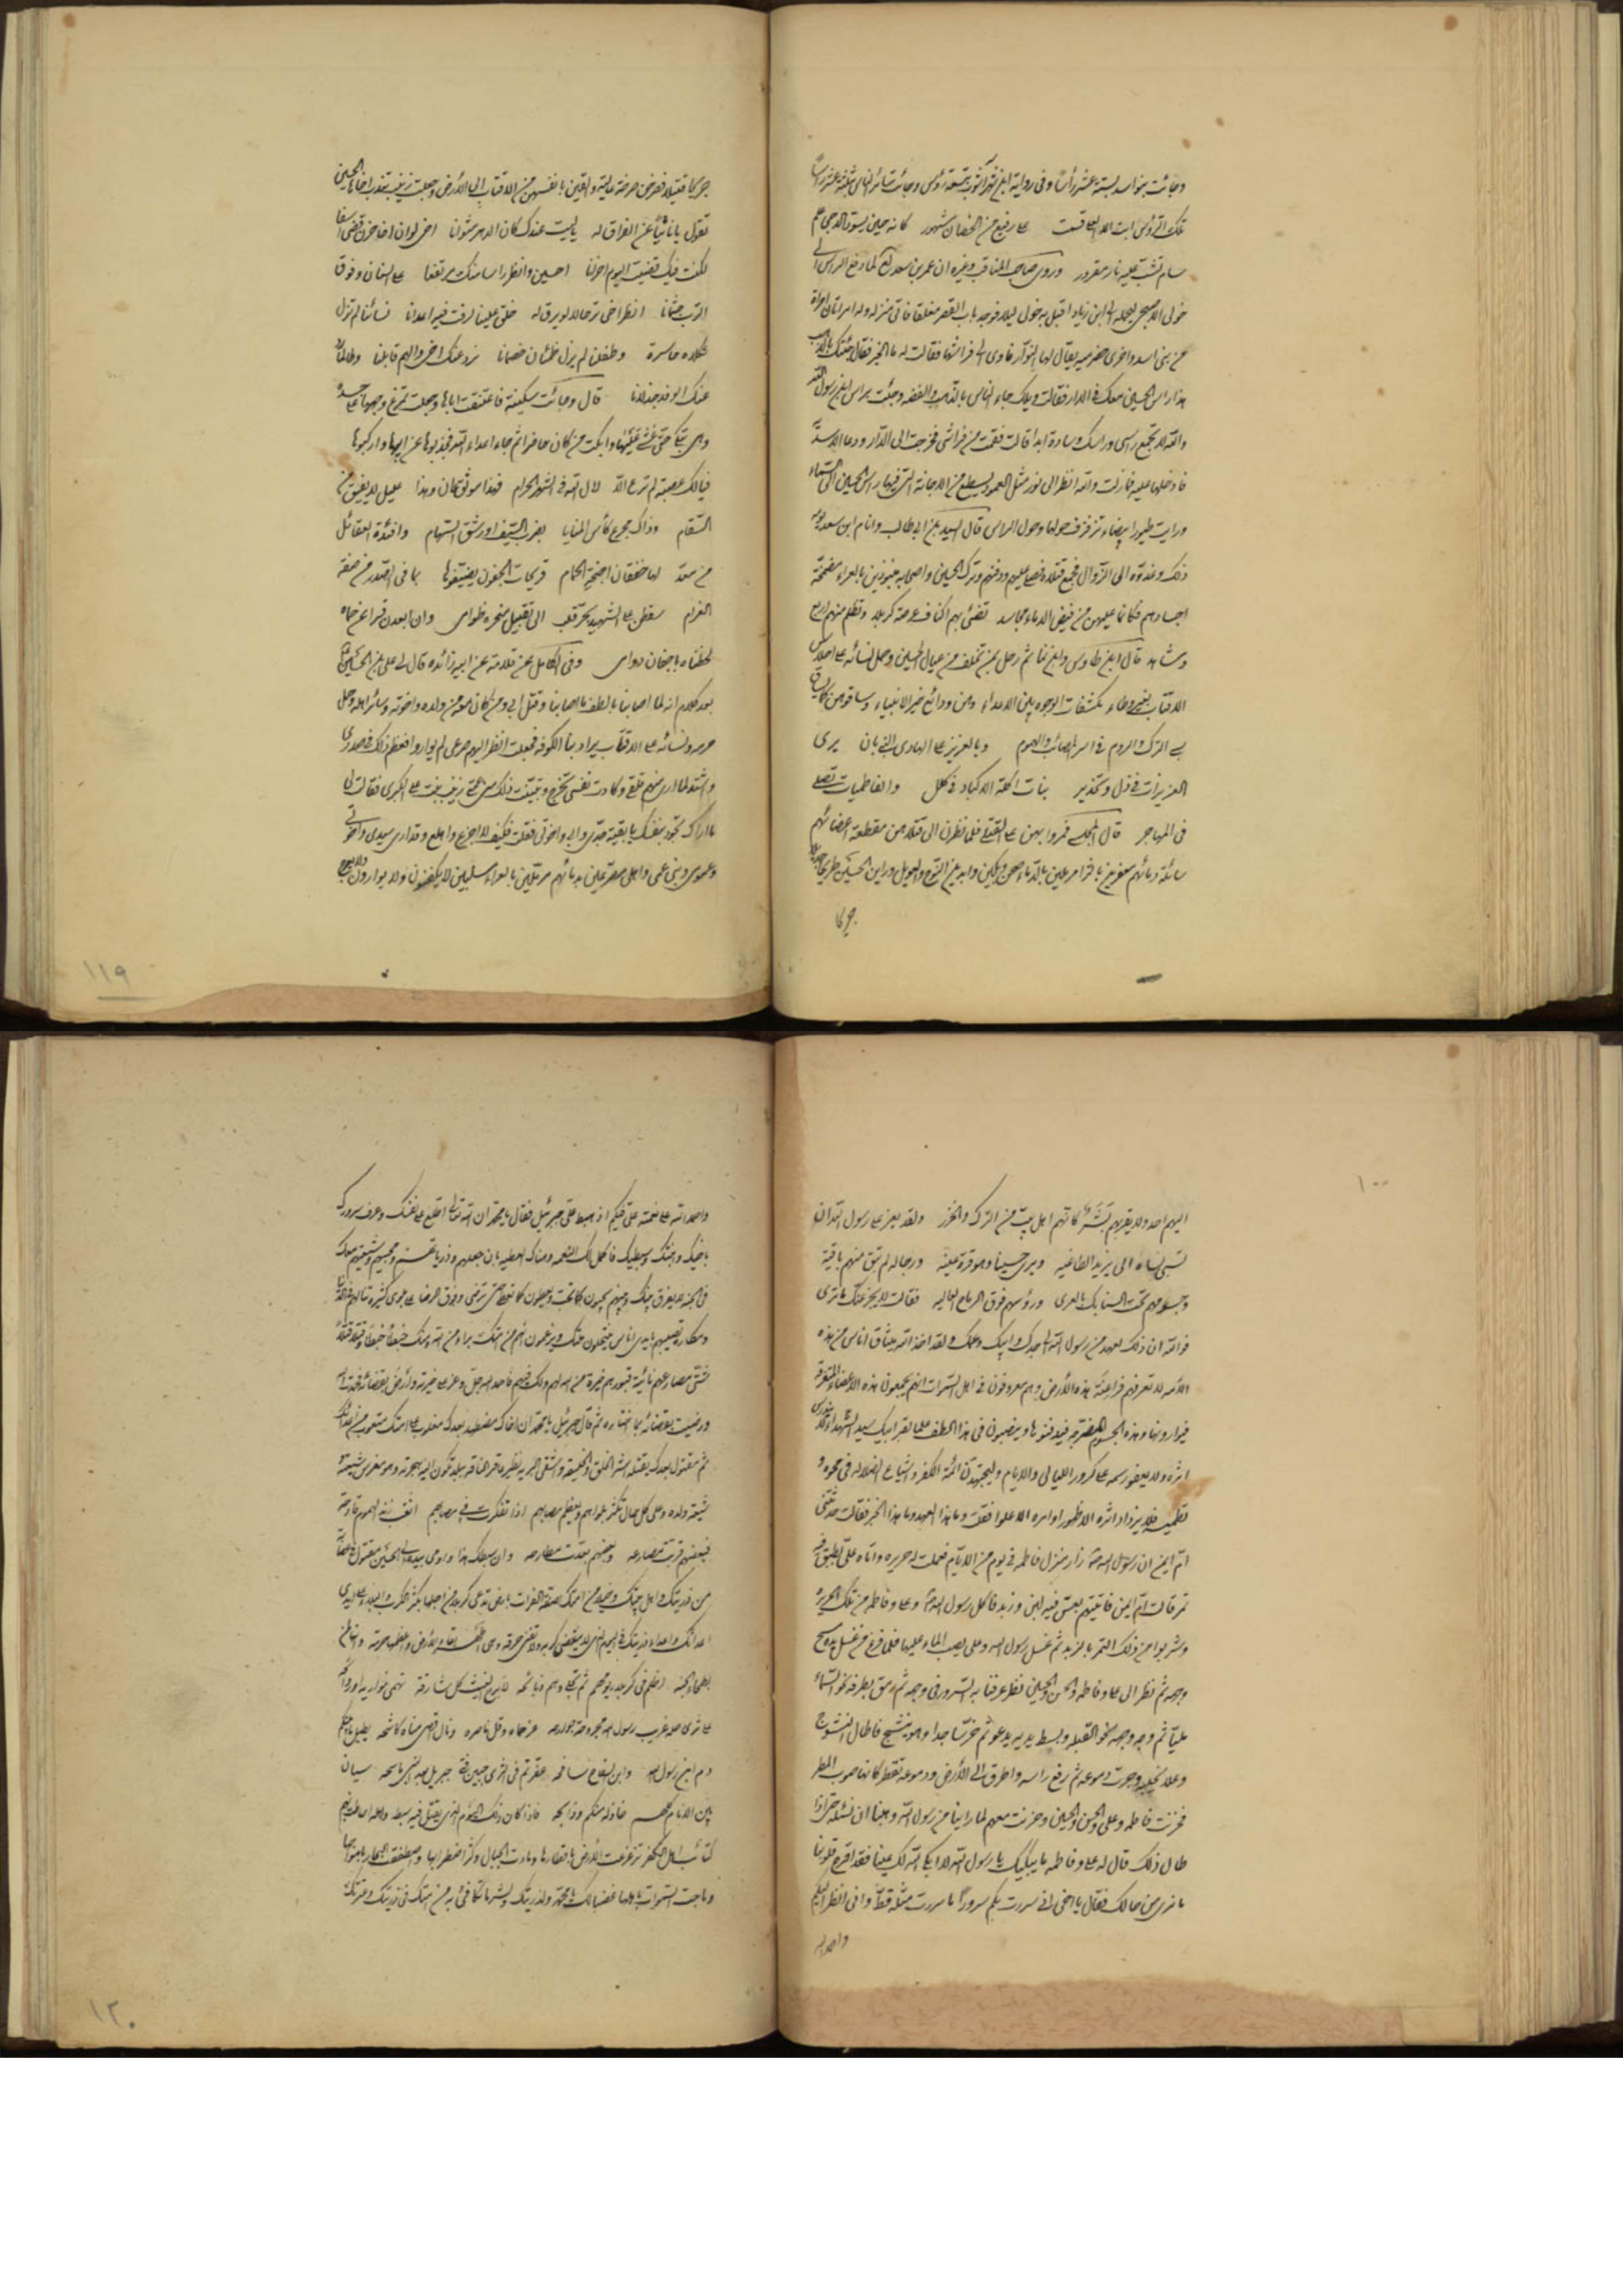 وجائت بنو اسد بستة عشر رأسًا وفي رواية ابن شهر آشوب بتسعة رؤس وجائت سائر الناس بثلثة عشر رأسًا
تلك الرؤس
سام تشب عليه نار مقرور وروى صاحب المناقب وغيره ان عمر بن سعد لع لما دفع الراس الى
خولى الاصبحى ليحمله الى ابن زياد اقبل به خولى ليلا فوجد باب القصر مغلقا فاتى منزله وله امراتان امراة
من بنى اسد واخرى حضرميه يقال لها النوار فاوى الى فراشها فقالت له ما الخبر فقال جئتك بالذهب
هذا راس الحسين معك في الدار فقالت ويلك جاء الناس بالذهب والفضه وجئت براس ابن رسول الله
والله لا تجمع راسى وراسك وسادة ابدا قالت فقمت من فراشى فخرجت الى الدار ودعا الاسديّة
فادخلها عليه فما زلت والله انظر الى نور مثل العمود يسطع من الاجانة التي فيها راس الحسين الى السماء
ورايت طيورا بيضاء ترفرف حولها وحول الراس قال السيد بن ابي طالب واقام ابن سعد يومه
ذلك وغدوه الى الزوال فجمع قتلاه فصلى عليهم ودفنهم وترك الحسين واصحابه منبوذين بالعراء مضمخة
اجسادهم فكانما عليهن من فيض الدماء مجاسد تضئ بهم اكناف عرصة كربلا وتظلم منهم اربع
ومشاهد قال ابن طاوس وابن نما ثم رحل بمن تخلف من عيال الحسين وحمل نسائه على احلاس
الاقتاب بغير وطاء مكشفات الوجوه بين الاعداء وهن ودائع خير الانبياء وساقوهن كما يساق
سبي الترك والروم في اسر المصائب والهموم وبالعزيز على الهادى النبي بان يرى
العزيزات في ذل وتحذير بنات اكلة الاكباد في كلل والفاطميات تصلى
فى الهواجر قال المجلسى فمروا بهن على القتلى فلما نظرن الى قتلاهن مقطعة اعضائهم
سائلة دمائهم معفرين بالثرا مرملين بالدماء صحن وبكين وابدين النوح والعويل وراين الحسين طريحا جديلا
جريحا
جريحا قتيلا فصرخن صرخة عالية والقين بانفسهن من الاقتاب الى الارض وجعلت زينب تندب اخاها الحسين
تقول يا نائيًا عن الفراق له ياليت عندك كان الدهر مثوانا اخى لو ان اخا حزن قضى اسفا
لكنت فيك قضيت اليوم احزانا احسين وانظر راسا منك مرتفعا على السنان وفوق
الترب جثمانا انظر اخى نسائنا لم تزل
ثكلاه حاسرة وطفلن لم يزل ظمئان
عنك الوفد جذلانا قال وجائت سكينة فاعتنقت اباها وجعلت تمرغ وجهها على جسده
وهى تبكى حتى غشى عليها وابكت من كان حاضرا ثم جاء اعداء الله فجذبوها عن ابيها واركبوها
فيالك عصبة لم ترع الّا لال الله فى الشهر الحرام فهذا موثق عان وهذا عليل لا يفيق من
السقام وذاك مجرع كاس المنايا بضرب السيف او رشق السهام وافئدة العقائل
من معد لها خفقان اجنحة الحمام قريحات الجفون
الغرام سقطن على الشهيد بحر قلب الى تقبيل منحره ظوامى وان ابعدن قسرا عن حماه
لحظناه باجفان دوامى وفى الكامل عن قدامة عن ابيه زائده قال لى على بن الحسين
بعد كلام انه لما اصابنا بالطف ما اصابنا وقتل ابى ومن كان معه من ولده واخوته وسائر اهله وحمل
حرمه ونسائه على الاقتاب يراد بنا الكوفه فجعلت انظر اليهم صرعى لم يواروا فعظم ذلك فى صدرى
واشتد لما ارى منهم قلقى وكادت نفسى تخرج وتبينت ذلك منى عمتى زينب بنت على الكبرى فقالت لى
مالى اراك تجود بنفسك يا بقية جدى وابى واخوتى فقلت وكيف لا اجزع واهلع وقد ارى سيدى واخوتى
وعمومى وبنى عمى واهلى مصرعين بدمائهم مرملين بالعراء مسلبين لا يكفنون ولا يوارون ولا يعرج
١١٩
١٠٠
اليهم احد ولا يقربهم بشر كانهم اهل بيت من الترك والخزر ولقد يعز على رسول الله ان
تسبى نساه الى يزيد الطاغيه ويرى حسينا وهو قرة عينه ورجاله لم تبق منهم باقية
وجسومهم تحت السنابك بالعرى ورؤسهم فوق الرماح العاليه فقالت لا يجزعنك ما ترى
فو الله ان ذلك لعهد من رسول الله الى جدك وابيك وعمك ولقد اخذ الله ميثاق اناس من هذه
الامه لا تعرفهم فراعنة هذه الأرض وهم معروفون فى اهل السموات انهم يجمعون هذه الاعضاء المتفرقة
فيوارونها وهذه الجسوم المضرجه فيدفنونها وينصبون فى هذا الطف علما لقبر ابيك سيد الشهداء لا يدرس
اثره ولا يعفو رسمه على كرور الليالى والايام وليجتهدن ائمة الكفر واشياع الضلاله فى محوه و
تطميسه فلا يزداد اثره الا ظهورا وامره الا علوا فقلت وما هذا العهد وما هذا الخبر فقالت حدثتنى
ام ايمن ان رسول الله زار منزل فاطمه فى يوم من الايام فعملت له حريره واتاه على بطبق فيه
تمر قالت ام ايمن فاتيتهم بعس فيه لبن وزبد فاكل رسول الله وعلى وفاطمه من تلك الحريره
وشربوا من ذلك التمر بالزبد ثم غسل رسول الله وعلى يصب الماء عليها فلما فرغ من غسل يده مسح
وجهه ثم نظر الى على وفاطمه والحسن والحسين نظر عرفنا به السرور فى وجهه ثم رمق بطرفه نحو السماء
مليّا ثم وجه وجهه نحو القبله وبسط يديه يدعو ثم خر ساجدا وهو ينشج فاطال النشوج
وعلا نحيبه وجرت دموعه ثم رفع راسه واطرق الى الأرض ودموعه تقطر كانها صوب المطر
فحزنت فاطمه وعلى والحسن والحسين وحزنت معهم لما راينا من رسول الله وهبنا ان نسئله حتى اذا
طال ذلك قال له على وفاطمه ما يبكيك يا رسول الله لا ابكى الله لك عينا فقد اقرح قلوبنا
ما نرى من حالك فقال يا اخى انى سررت بكم سرورًا ما سررت مثله قط وانى انظر اليكم
واحمد الله
واحمد الله على نعمته على فيكم اذ هبط على جبرئيل فقال يا محمد ان الله تعالى اطلع على نفسك وعرف سرورك
باخيك وابنتك وسبطيك فاكمل لك النعمه وهناك العطيه بان جعلهم وذرياتهم ومحبيهم وشيعتهم معك
فى الجنه لا يفرق بينك وبينهم يحيون كما تحيى ويعطون كما تعطى حتى ترضى وفوق الرضا على بلوى كثيره تنالهم فى الدنيا
ومكاره تصيبهم بايدى اناس ينتحلون ملتك ويزعمون انهم من امتك براء من الله ومنك خبطا خبطا وقتلا قتلا
شتى مصارعهم نائية قبورهم خيرة من الله لهم ولك فيهم فاحمد الله جل وعز على خيرته وارض بقضائه فحمدت الله
ورضيت بقضائه بما اختاره ثم قال جبرئيل يا محمد ان اخاك مضطهد بعدك مغلوب على امتك متعوب من اعدائك
ثم مقتول بعدك يقتله اشر الخلق والخليقه واشقى البريه نظير عاقر الناقه ببلد تكون اليه هجرته وهو مغرس شيعته
وشيعة ولده وعلى كل حال تكثر بلواهم ويعظم مصابهم اذا تفكرت فى مصابهم
فبعضهم قربت مصارعه وبعضهم بعدت مطارحه وان سبطك هذا واومى بيده الى الحسين مقتول فى عصابة
من ذريتك واهل بيتك وخيار من امتك بضفة الفرات بارض تدعى كربلا من اجلها يكثر الكرب والبلاء على ايدى
اعدائك واعداء ذريتك فى اليوم الذى لا ينقضى كربه ولا تفنى حسرته وهى اطهر بقاع الأرض واعظمها حرمة وانها من
بطحاء الجنه
دم ابن رسول الله وابن السفاح سافحه
بين الانام فاذا كان ذلك اليوم الذى يقتل فيه سبطك واهله احاطت بهم
كتائب اهل الكفر تزعزعت الأرض من اقطارها ومادت الجبال وكثر اضطرابها واصطفقت البحار بامواجها
وماجت السموات باهلها غضبا لك يا محمد ولذريتك واستعظاما لما ينتهك من حرمتك
١٢٠